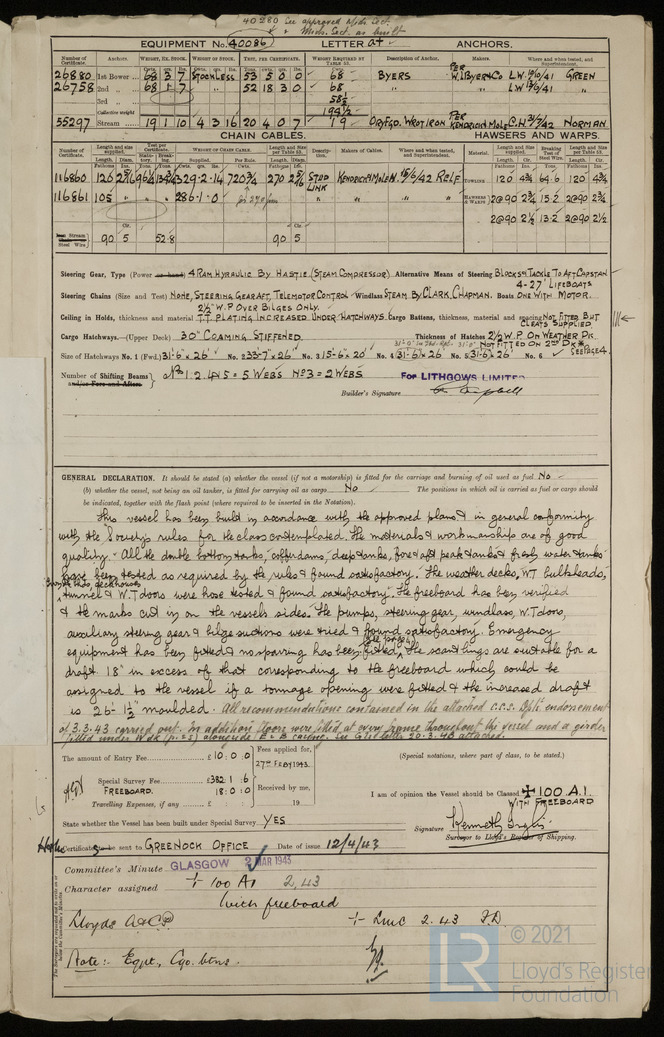 40280 See approved Mids. Sect.
& Mids. Sect. as built
EQUIPMENT No. 40086 LETTER at ANCHORS.
Number of Certificate. Anchors. WEIGHT, EX. STOCK. WEIGHT OF STOCK. TEST, PER CERTIFICATE. WEIGHT REQUIRED BY TABLE 53. Description of Anchor. Makers. Where and when tested, and Superintendent.
26880 1st Bower 68 3 7 STOCKLESS 53 5 0 0 68 BYERS PER W.L. BYERS & CO L.W. GREEN
26758 2nd 68 1 7 52 18 3 0 68 L.W.
3rd 58½
Collective weight 194½
55297 Stream 19 1 10 4 3 16 20 4 0 7 19 ORD. FGD. WROT IRON PER KENDRICK & MOLE C.H. 3/2/42 NORMAN
CHAIN CABLES. HAWSERS AND WARPS.
Number of Certificate. Length and size supplied. Test per Certificate. WEIGHT OF CHAIN CABLE. Length and size per Table 53. Description. Makers of Cables. Where and when tested, and Superintendent. Material. Length and Size supplied. Breaking Test of Steel Wire. Length and Size per Table 53.
Supplied. Per Rule.
116860 STUD LINK KENDRICK & MOLE N. 15/6/42 RELF TOWLINE 120 4¾ 64.6 120 4¾
116861 105 286.1.0 HAWSERS & WARPS 2@90 2¾ 15.2 2@90 2¾
2@90 2½ 13.2 2@90 2½
Stream Steel Wire 90 5 52.8 90 5
Steering Gear, Type (Power or hand) 4 RAM HYRAULIC BY HASTIE (STEAM COMPRESSOR) Alternative Means of Steering BLOCKS & TACKLE TO AFT CAPSTAN
4-27' LIFEBOATS
Steering Chains (Size and Test) NONE, STEERING GEAR AFT, TELEMOTOR CONTROL Windlass STEAM BY CLARK, CHAPMAN. Boats ONE WITH MOTOR.
2½" W.P OVER BILGES ONLY.
Ceiling in Holds, thickness and material T.T. PLATING INCREASED UNDER HATCHWAYS. Cargo Battens, thickness, material and spacing NOT FITTED BUT CLEATS SUPPLIED
Cargo Hatchways.—(Upper Deck) 30" COAMING STIFFENED. Thickness of Hatches 2½" W.P ON WEATHER DK.
NOT FITTED ON 2ND DK
Size of Hatchways No. 1 (Fwd.) 31'-6" x 26' No. 2 33'-7" x 26' No. 3 15'-6" x 20' No. 4 31'-6" x 26' No. 5 31'-6" x 26' No. 6 SEE PAGE 4.
Number of Shifting Beams and/or Fore and Afters Nos 1. 2. 4 & 5 = 5 WEBS No 3 = 2 WEBS
FOR LITHGOWS LIMITED
Builder's Signature
GENERAL DECLARATION. It should be stated (a) whether the vessel (if not a motorship) is fitted for the carriage and burning of oil used as fuel No
(b) whether the vessel, not being an oil tanker, is fitted for carrying oil as cargo No The positions in which oil is carried as fuel or cargo should
be indicated, together with the flash point (where required to be inserted in the Notation).
This vessel has been built in accordance with the approved plans & in general conformity
with the Society's rules for the class contemplated. The materials & workmanship are of good
quality. All the double bottom tanks, cofferdams, deep tanks, fore & aft peak tanks & fresh water tanks
have been tested as required by the rules & found satisfactory. The weather decks, WT bulkheads,
tunnel & W.T doors were hose tested & found satisfactory. The freeboard has been verified
& the marks cut in on the vessels sides. The pumps, steering gear, windlass, W.T doors,
auxiliary steering gear & bilge suctions were tried & found satisfactory. Emergency
equipment has been fitted & no sparring has been fitted. The scantlings are suitable for a
draft 18" in excess of that corresponding to the freeboard which could be
assigned to the vessel if a tonnage opening were fitted & the increased draft
is 26'-1½" moulded. All recommendations contained in the attached endorsement
of 3.3.43 carried out. In addition floors were fitted at every frame throughout the vessel and a girder
fitted under W dk (p. & s) alongside E & B casing. See Gls letter 20-3-43 attached.
The amount of Entry Fee £10 : 0 : 0 Fees applied for, (Special notations, where part of class, to be stated.)
27TH FEBY 1943.
Special Survey Fee £382 : 1 : 6
FREEBOARD. 18 : 0 : 0 Received by me,
Travelling Expenses, if any £ : : 19
I am of opinion the Vessel should be Classed ✠ 100 A.I.
WITH FREEBOARD
State whether the Vessel has been built under Special Survey YES
Signature Kenneth
Surveyor to Lloyd's Register of Shipping.
Certificate to be sent to GREENOCK OFFICE Date of issue 12/4/43
Committee's Minute GLASGOW 2 MAR 1943
Character assigned + 100 A1 2,43
with freeboard
Lloyds A&CP + LMC 2.43 F.D.
Note:- Eqpt, Cgo. btns.
© 2021
Lloyd's Register
Foundation
LR